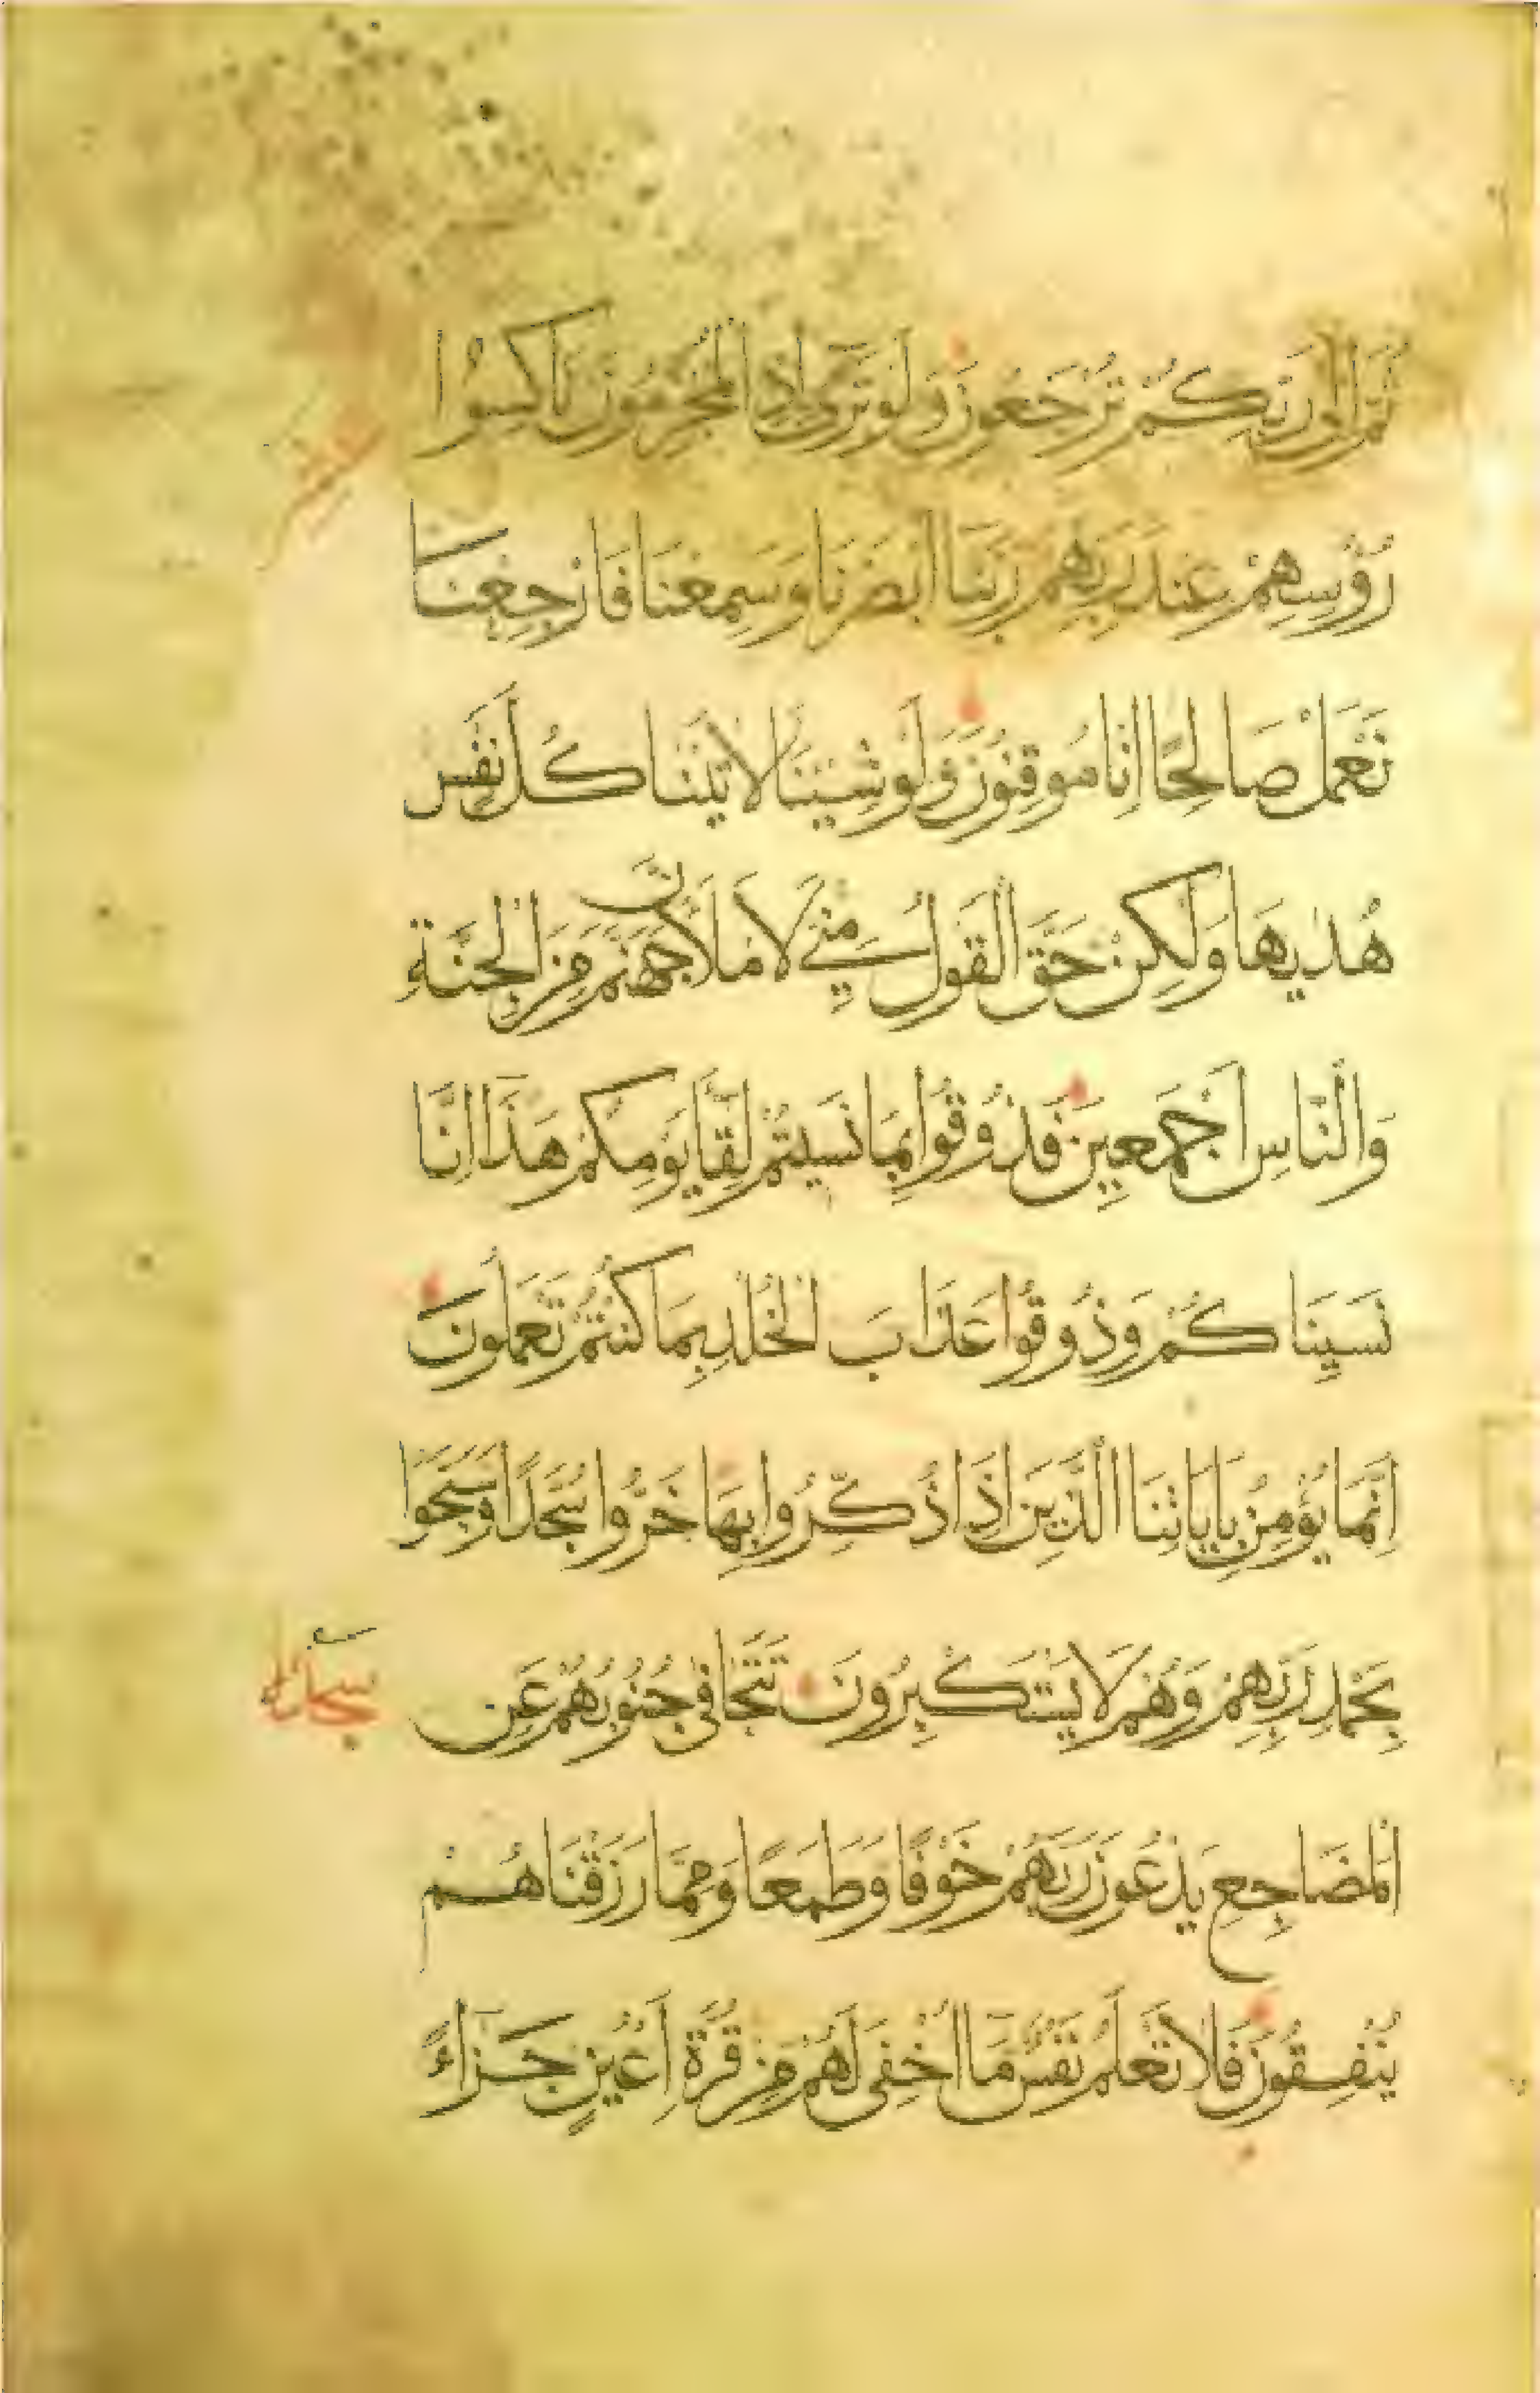 ثُمَّ اِلٰى رَبِّكُمْ تُرْجَعُونَ وَلَوْ تَرٰى اِذِ الْمُجْرِمُونَ نَاكِسُوا
رُؤُسِهِمْ عِنْدَ رَبِّهِمْ رَبَّنَا اَبْصَرْنَا وَسَمِعْنَا فَارْجِعْنَا
نَعْمَلْ صَالِحًا اِنَّا مُوقِنُونَ وَلَوْ شِئْنَا لَاٰتَيْنَا كُلَّ نَفْسٍ
هُدٰيهَا وَلٰكِنْ حَقَّ الْقَوْلُ مِنِّي لَاَمْلَاَنَّ جَهَنَّمَ مِنَ الْجِنَّةِ
وَالنَّاسِ اَجْمَعِينَ فَذُوقُوا بِمَا نَسِيتُمْ لِقَآءَ يَوْمِكُمْ هٰذَا اِنَّا
نَسِينَاكُمْ وَذُوقُوا عَذَابَ الْخُلْدِ بِمَا كُنْتُمْ تَعْمَلُونَ
اِنَّمَا يُؤْمِنُ بِاٰيَاتِنَا الَّذِينَ اِذَا ذُكِّرُوا بِهَا خَرُّوا سُجَّدًا وَسَبَّحُوا
بِحَمْدِ رَبِّهِمْ وَهُمْ لَا يَسْتَكْبِرُونَ تَتَجَافٰى جُنُوبُهُمْ عَنِ
الْمَضَاجِعِ يَدْعُونَ رَبَّهُمْ خَوْفًا وَطَمَعًا وَمِمَّا رَزَقْنَاهُمْ
يُنْفِقُونَ فَلَا تَعْلَمُ نَفْسٌ مَآ اُخْفِىَ لَهُمْ مِنْ قُرَّةِ اَعْيُنٍ جَزَآءً